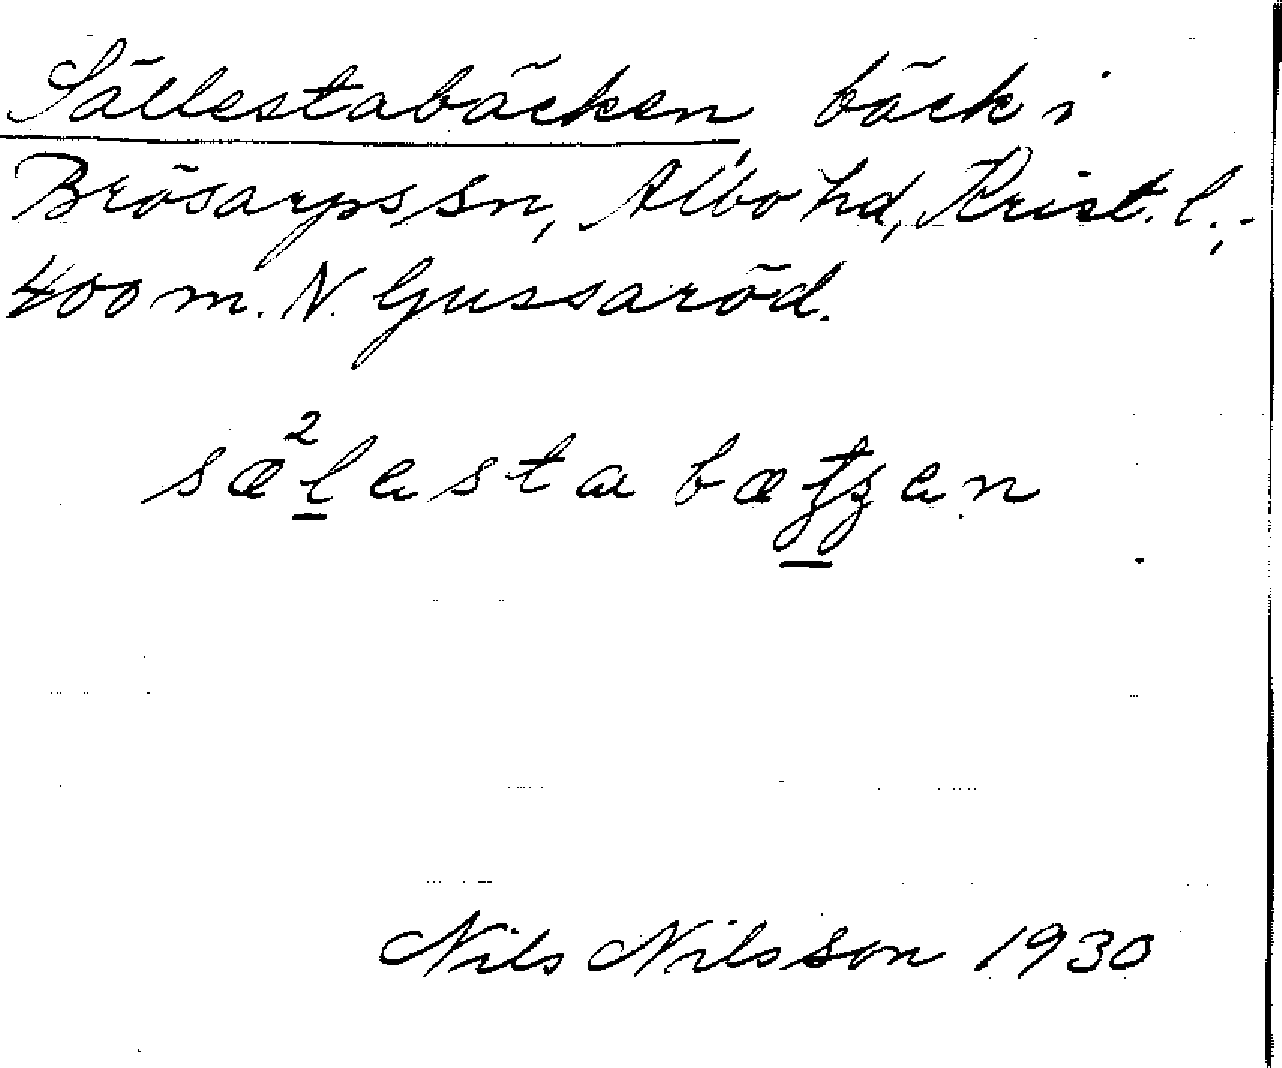 Sällestabäcken, bäck i
Brösarps sn, Albo hd, Krist. l.,
400 m. N. Gussaröd.
Nils Nilsson 1930